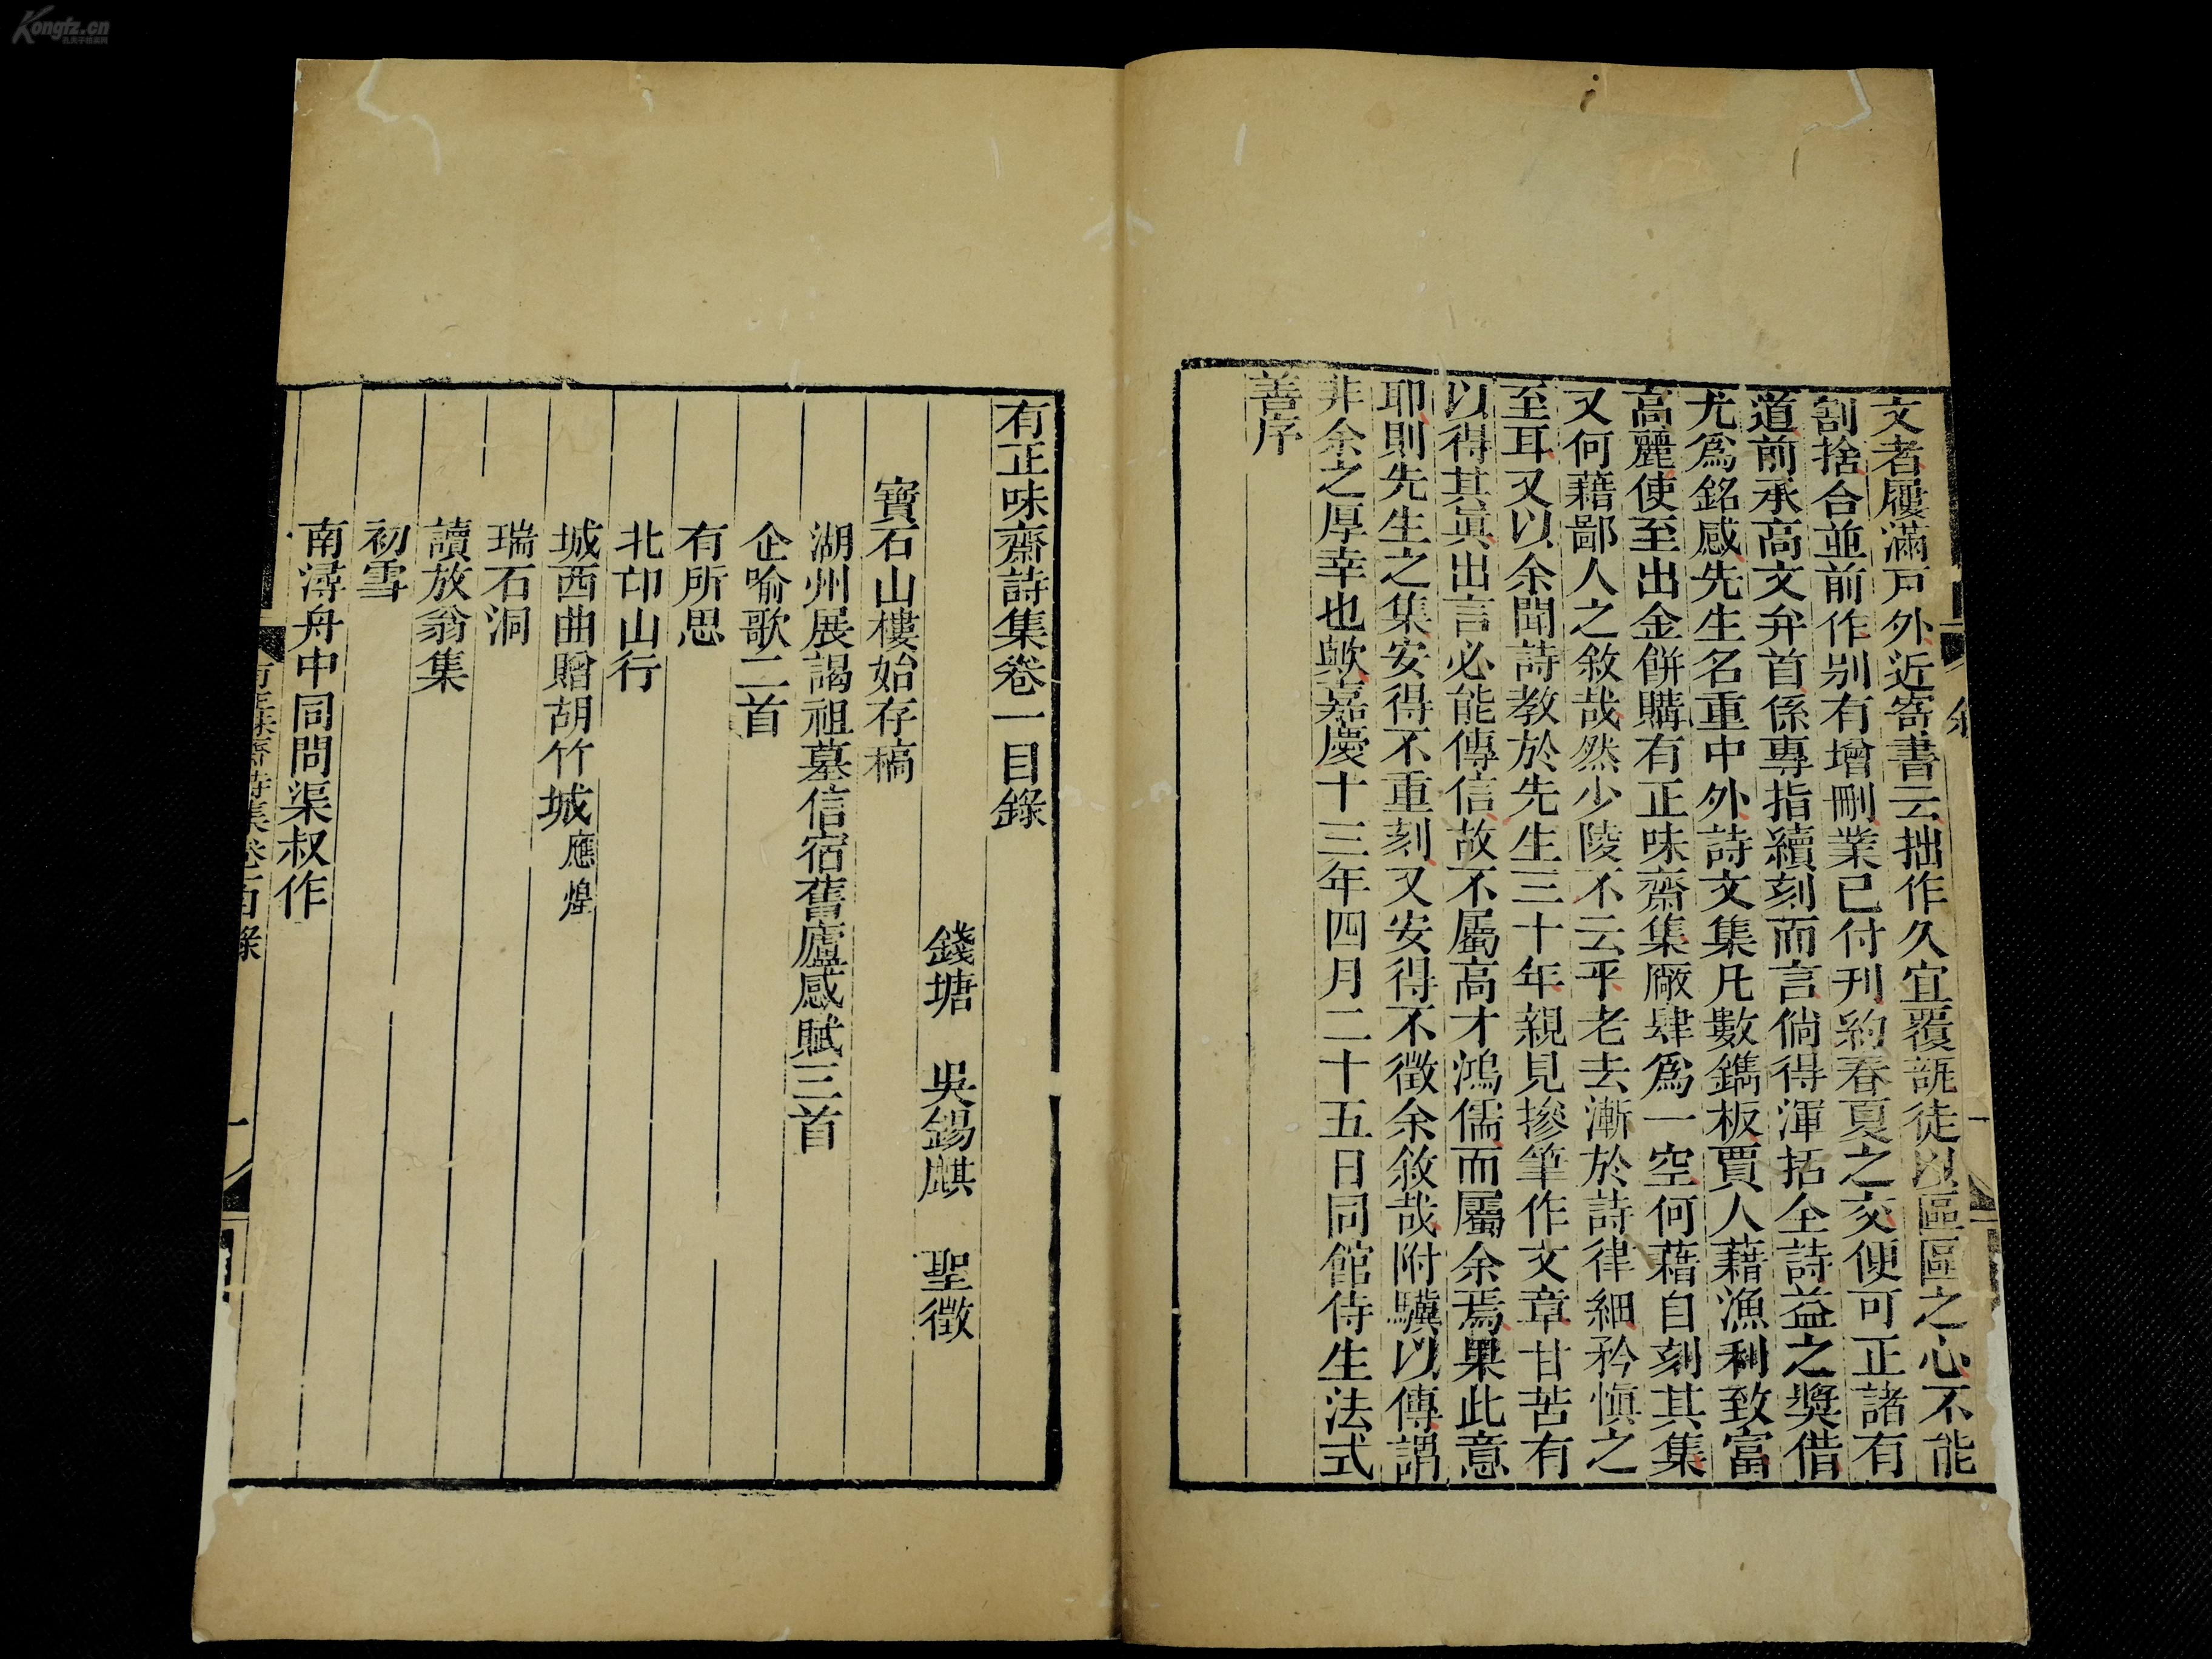 文者屨滿戸外近寄書云拙作久宜覆瓿徒以區區之心不能
割捨合並前作别有增刪業已付刊約春夏之交便可正諸有
道前承高文弁首係專指續刻而言倘得渾括全詩益之獎借
尤爲銘感先生名重中外詩文集凡數鐫板賈人藉漁利致富
高麗使至出金餅購有正味齋集廠肆爲一空何藉自刻其集
又何藉鄙人之敘哉然少陵不云乎老去漸於詩律細矜慎之
至耳又以余聞詩教於先生三十年親見摻筆作文章甘苦有
以得其眞出言必能傳信故不屬高才鴻儒而屬余焉果此意
耶則先生之集安得不重刻又安得不徵余敘哉附驥以傳謂
非余之厚幸也歟嘉慶十三年四月二十五日同館侍生法式
善序
有正味齋詩集卷一目錄
錢塘 吳錫麒 聖徵
寶石山樓始存稿
湖州展謁祖墓信宿舊廬感賦三首
企喻歌二首
有所思
北邙山行
城西曲贈胡竹城應煌
瑞石洞
讀放翁集
初雪
南潯舟中同問渠叔作
有正味齋詩集卷一目錄 一
Kongfz.cn